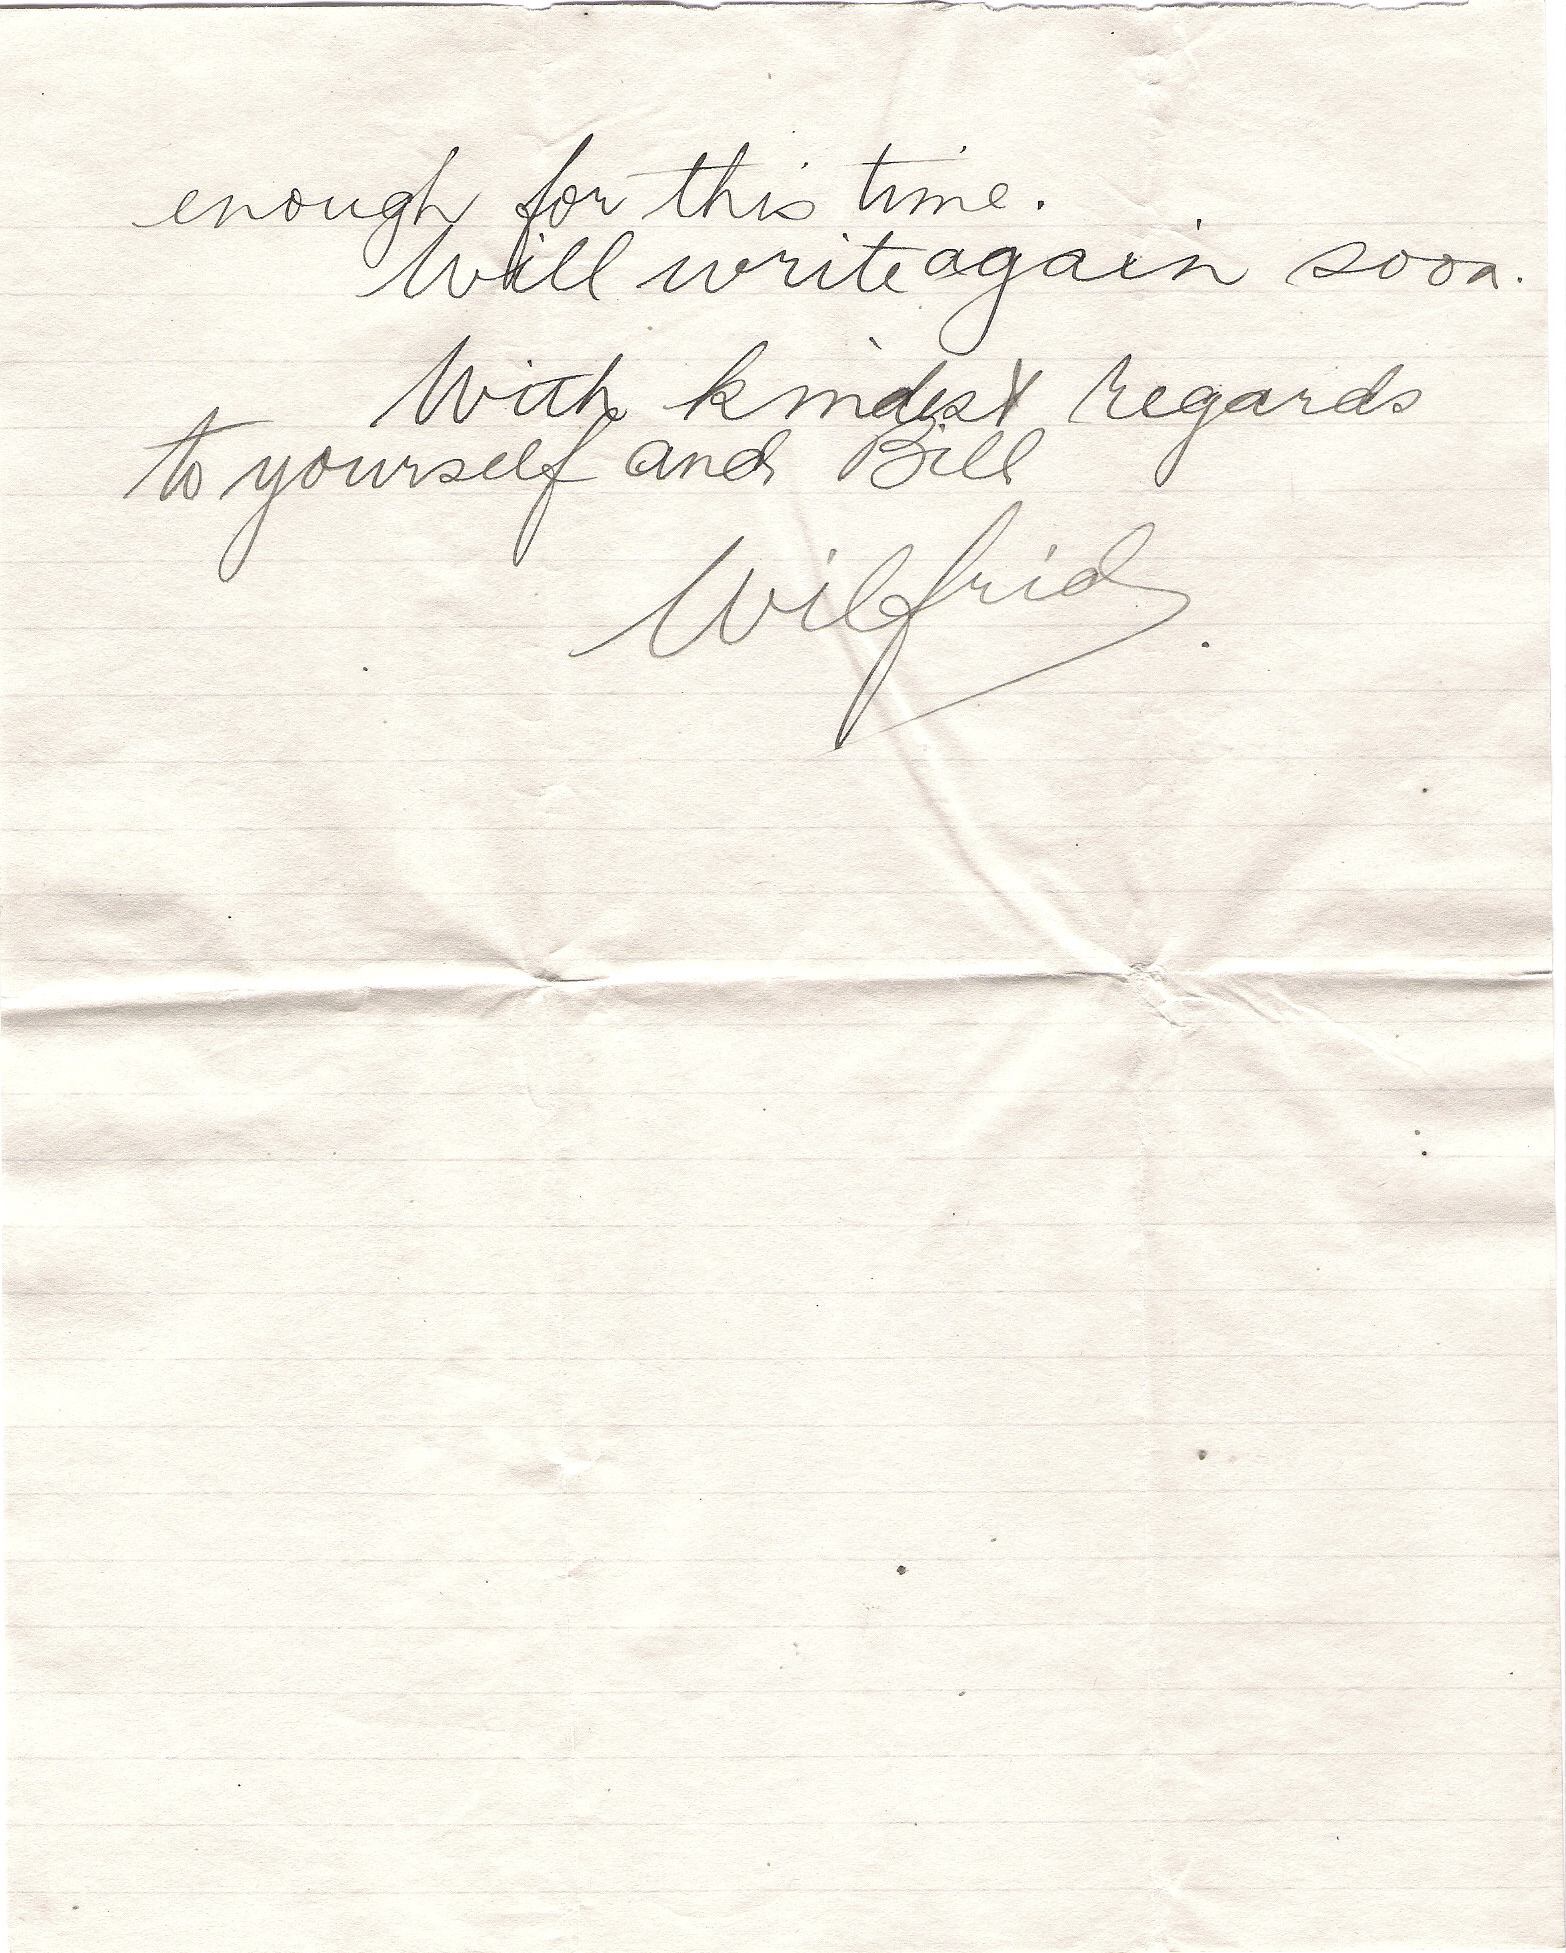 enough for this time.
Will write again soon.
With kindest regards
to yourself and Bill
Wilfrid.